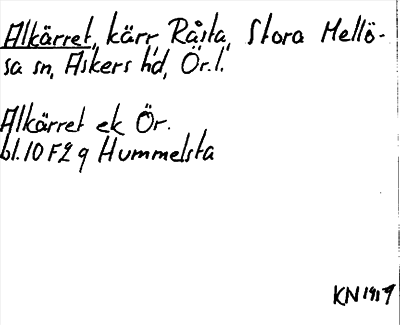 Alkärret, kärr, Råsta, Stora Mellö-
sa sn, Askers hd, Ör.l.
Alkärret ek Ör.
bl.10F2g Hummelsta
KN 1917